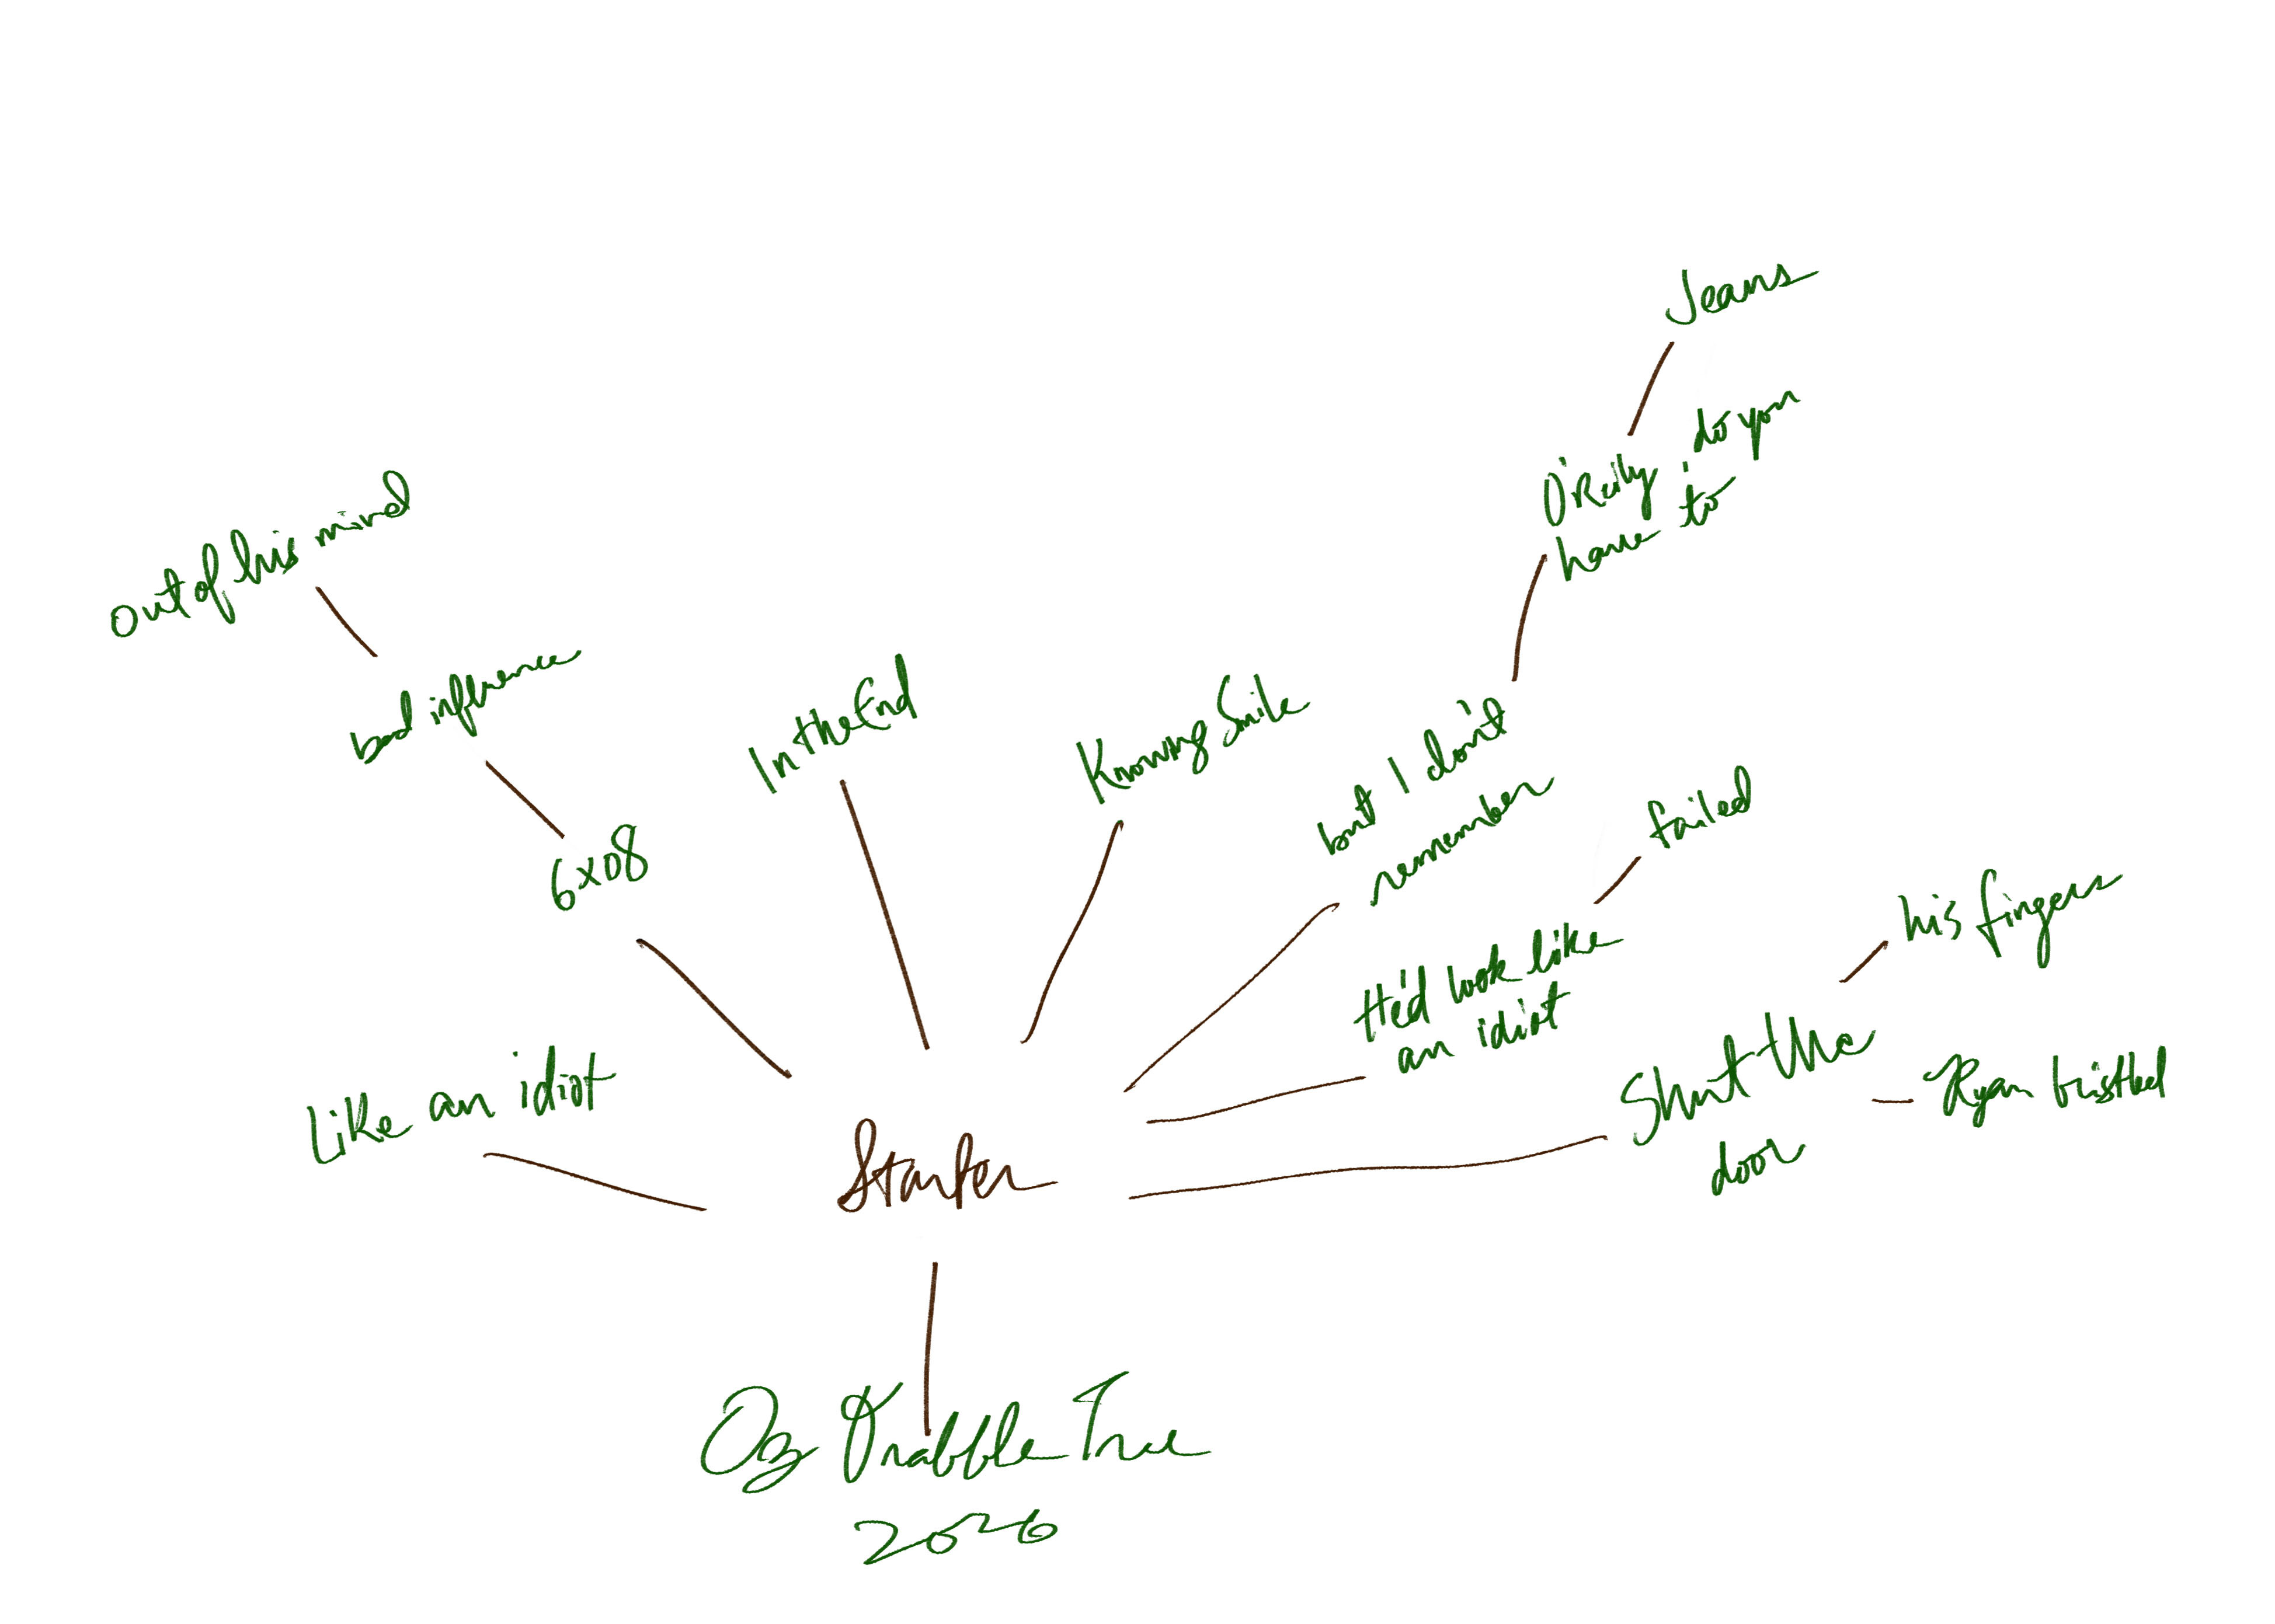 Jeans
O'Reily do you
have to
out of his mind
bad influence
In the End
Knowing Smile
but I don't
remember
failed
6x08
his fingers
He'd look like
an idiot
Shut the
door
Ryan bristled
Like an idiot
Starter
Oz Drabble Tree
2026